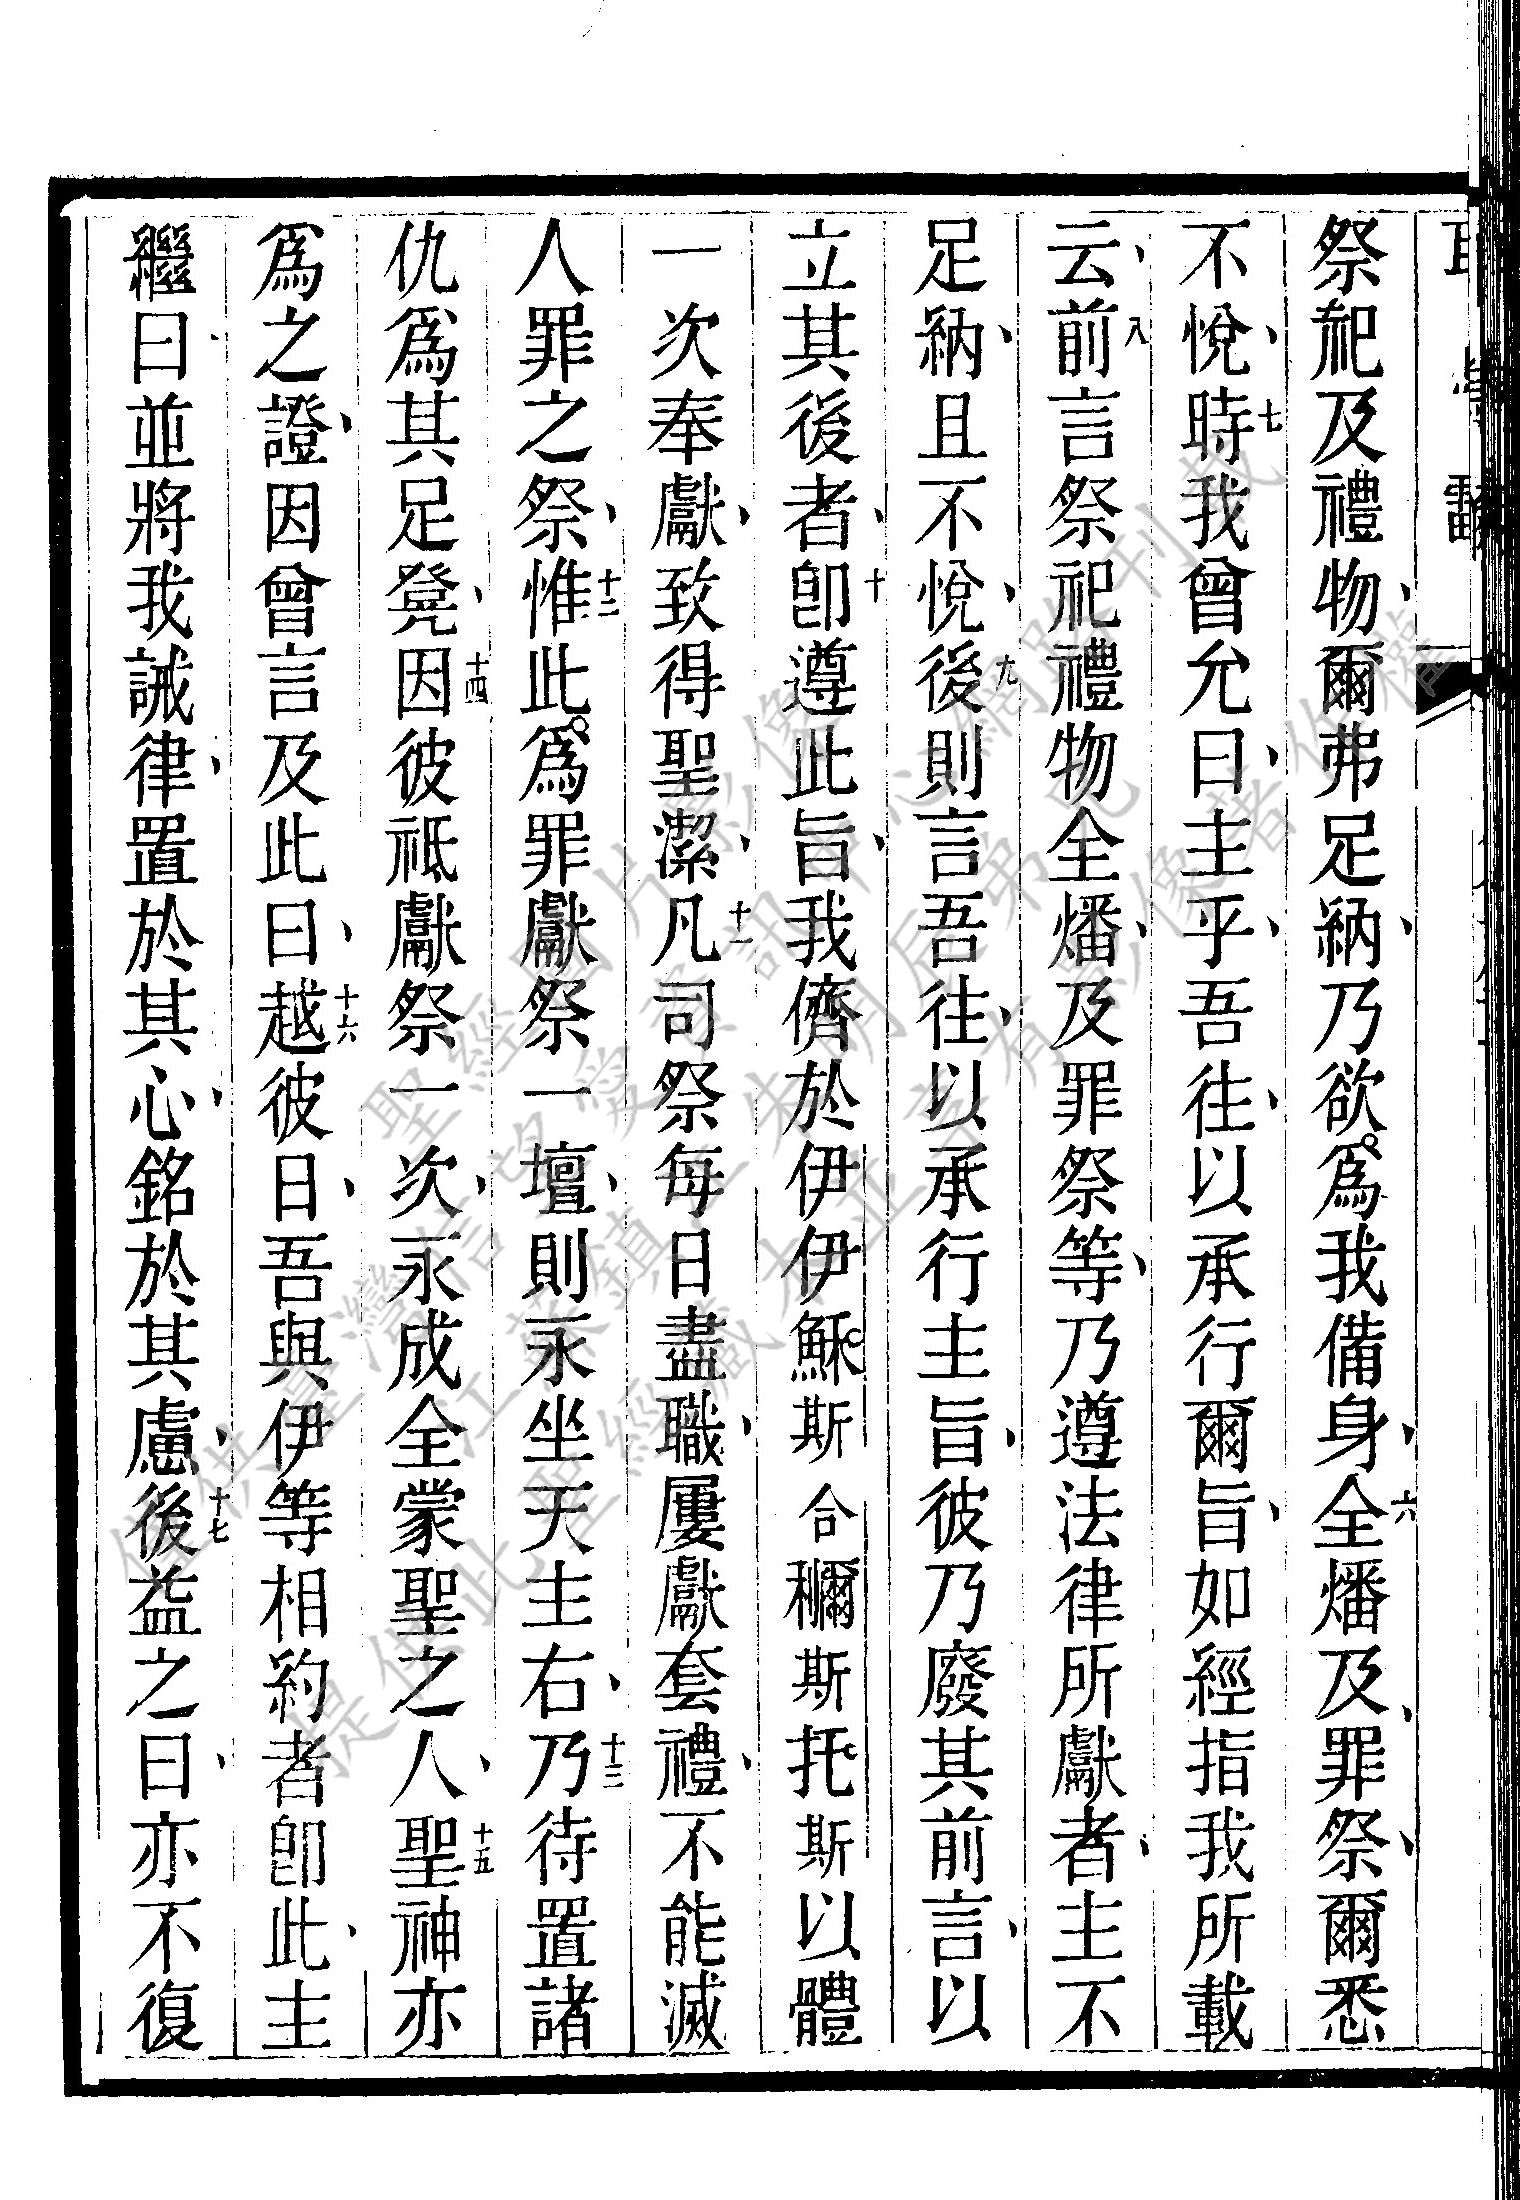 祭祀及禮物、爾弗足納、乃欲爲我備身、六全燔及、罪祭、爾悉
不悅、七時我曾允曰、主乎、吾往、以承行爾旨、如經指我所載
云、八前言祭祀禮物全燔、及罪祭等、乃遵法律所獻者、主不
足納、且不悅、九後則言吾往、以承行主旨、彼乃廢其前言、以
立其後者、十卽遵此旨、我儕於伊伊穌斯合穪斯托斯以體
一次奉獻、致得聖潔、十一凡司祭每日盡職、屢獻套禮、不能滅
人罪之祭、十二惟此爲罪獻祭一壇、則永坐天主右、十三乃待置諸
仇爲其足凳、十四因彼祗獻祭一次、永成全蒙聖之人、十五聖神亦
爲之證、因曾言及此曰、十六越彼日、吾與伊等相約者卽此、主
繼曰、並將我誡律、置於其心、銘於其慮、十七後益之曰、亦不復
僅供臺灣信望愛資訊中心網路刊載